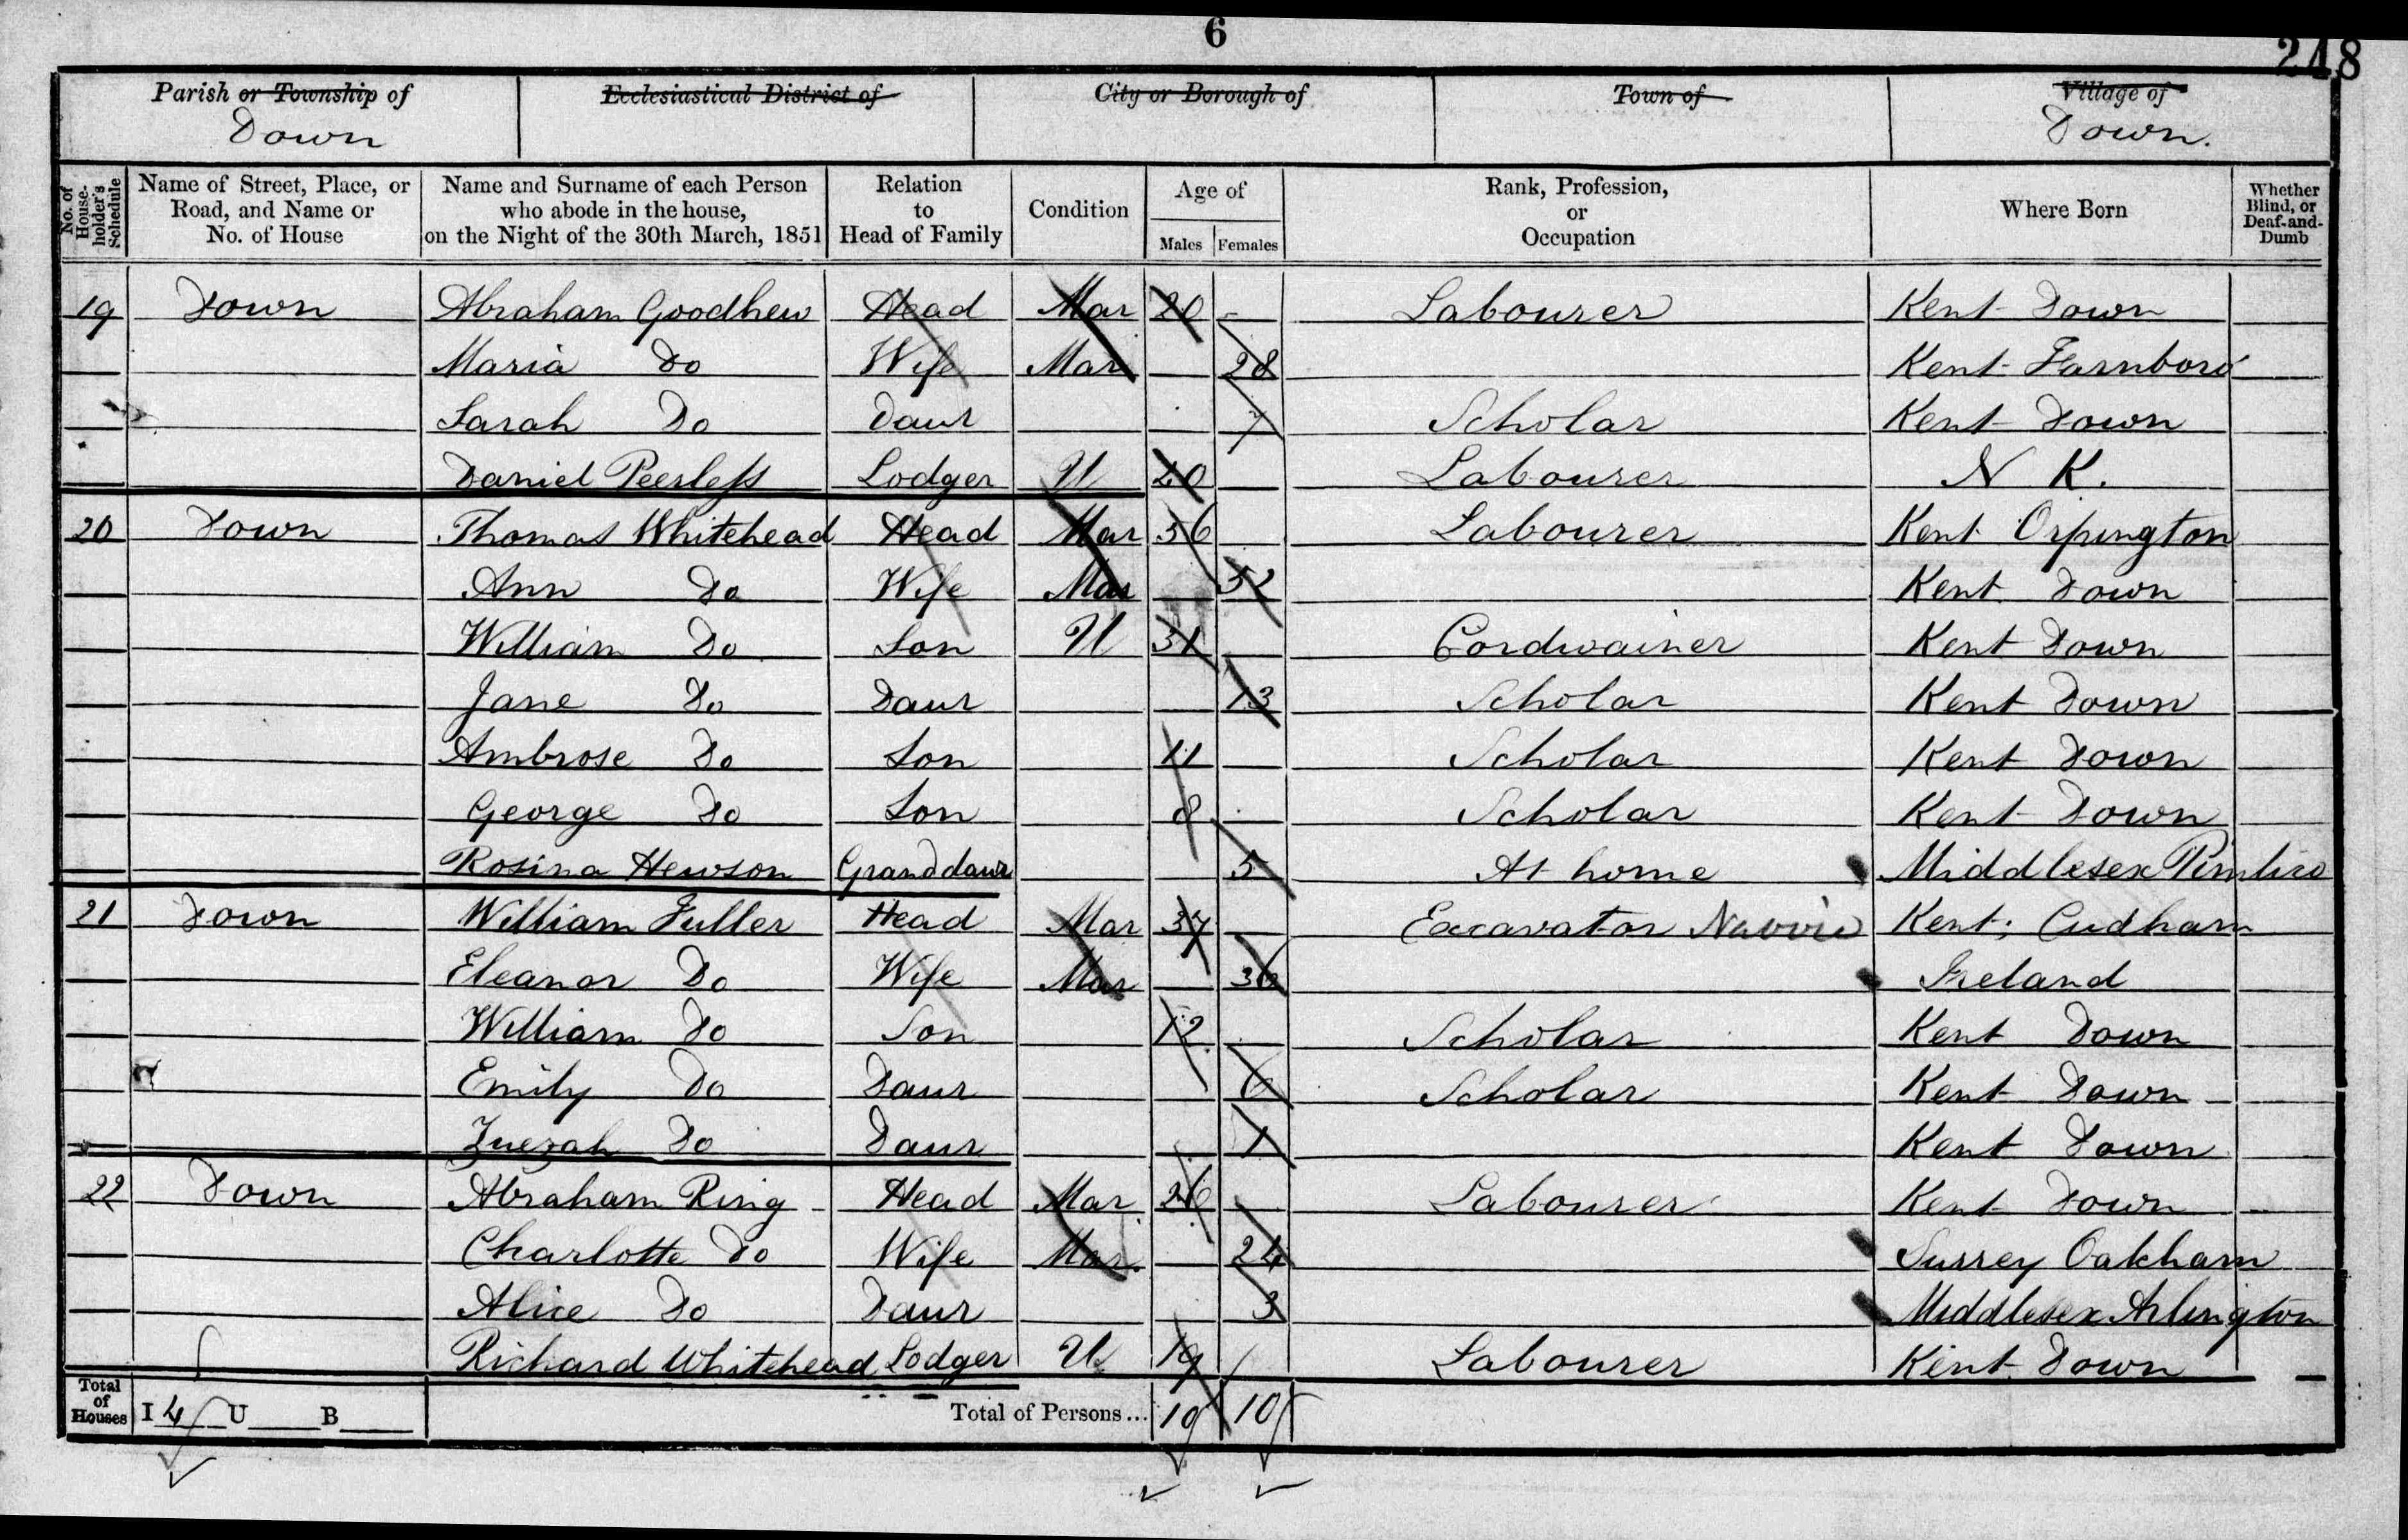 6
248
Parish or Township of
Down
Ecclesiastical District of
City or Borough of
Town of
Village of
Down.
No. of House-holder's Schedule
Name of Street, Place, or Road, and Name or No. of House
Name and Surname of each Person who abode in the house, on the Night of the 30th March, 1851
Relation to Head of Family
Condition
Age of
Males Females
Rank, Profession, or Occupation
Where Born
Whether Blind, or Deaf-and-Dumb
19 Down Abraham Goodhew Head Mar Labourer Kent Down
Maria Do Wife Mar 28 Kent Farnboro'
Sarah Do Daur 7 Scholar Kent Down
Daniel Peerless Lodger U Labourer N K.
20 Down Thomas Whitehead Head Mar 56 Labourer Kent Orpington
Ann Do Wife Mar 52 Kent Down
William Do Son U 31 Cordwainer Kent Down
Jane Do Daur 13 Scholar Kent Down
Ambrose Do Son 11 Scholar Kent Down
George Do Son 8 Scholar Kent Down
Rosina Hewson Granddaur 5 At home Middlesex Pimlico
21 Down William Fuller Head Mar 37 Excavator Navvie Kent; Cudham
Eleanor Do Wife Mar 36 Ireland
William Do Son 12 Scholar Kent Down
Emily Do Daur 6 Scholar Kent Down
Do Daur 1 Kent Down
22 Down Abraham Ring Head Mar 26 Labourer Kent Down
Charlotte Do Wife Mar. 24 Surrey Oakham
Alice Do Daur 3 Middlesex Arlington
Richard Whitehead Lodger U 19 Labourer Kent Down
Total of Houses I 4 U B Total of Persons... 10 10